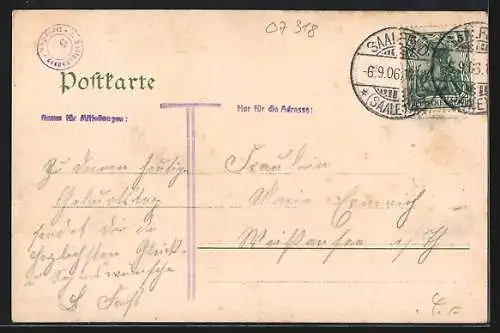 07 318
SAALFELD
-6.9.06.
*(SAALE)
Postkarte
Raum für Mitteilungen:
Nur für die Adresse:
T
Zu Deinem heutigen
Geburtstag
sendet Dir die
herzlichsten Glück-
u. Segenswünsche
Fräulein
Marie
Weißensee i/Th